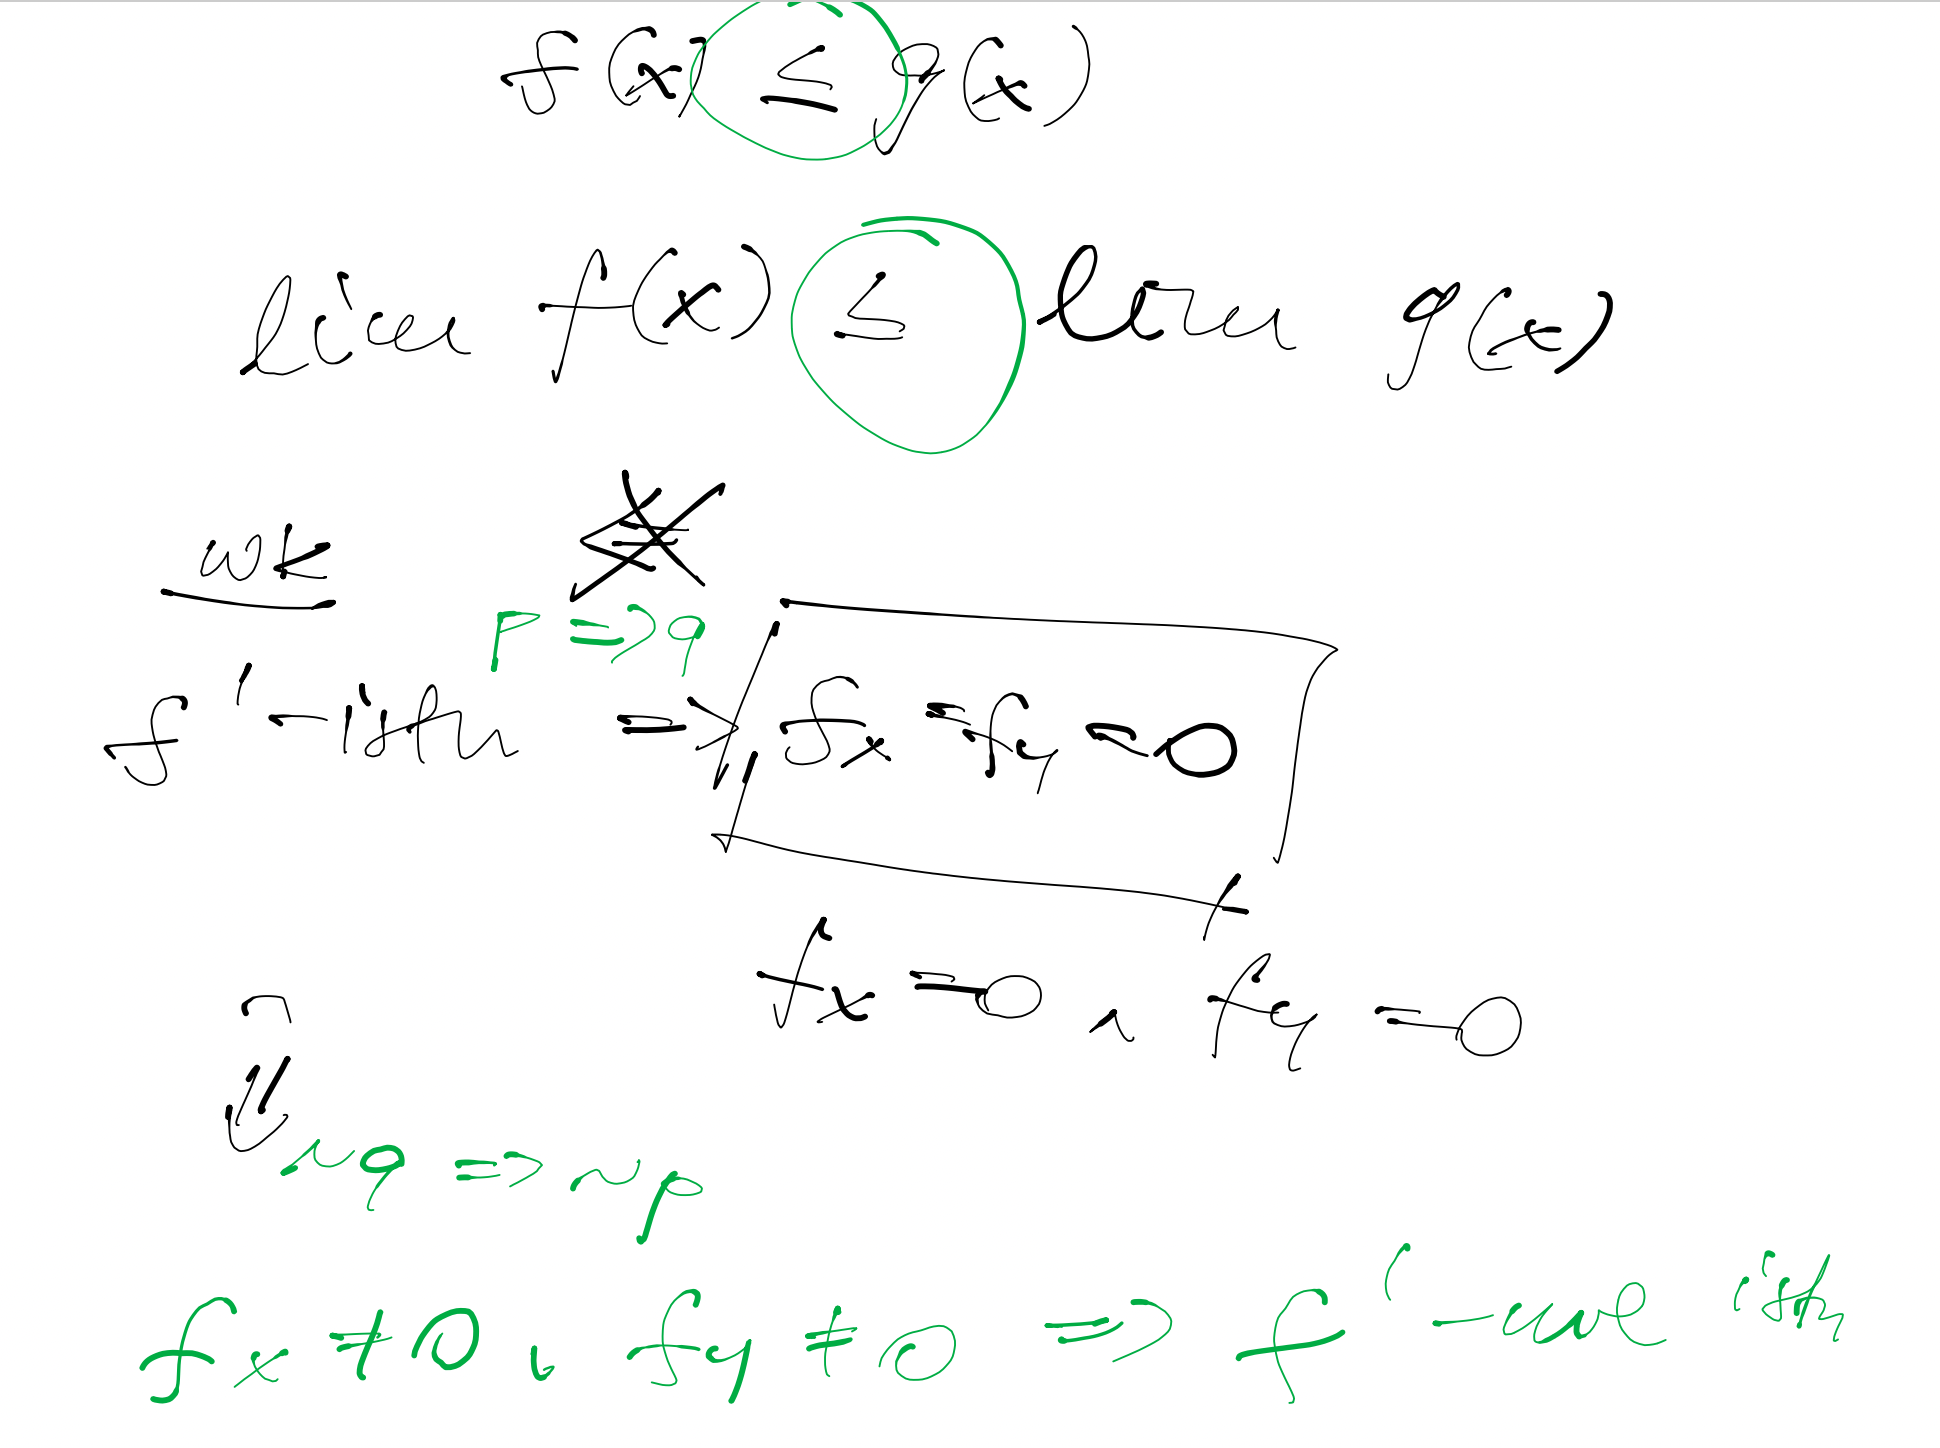 f(x) ≤ g(x)
lim f(x) ≤ lim g(x)
wk
p => q
f' - istn => fx = fy = 0
fx = 0 ∧ fy = 0
~q => ~p
fx ≠ 0 ∨ fy ≠ 0 => f' - nie istn